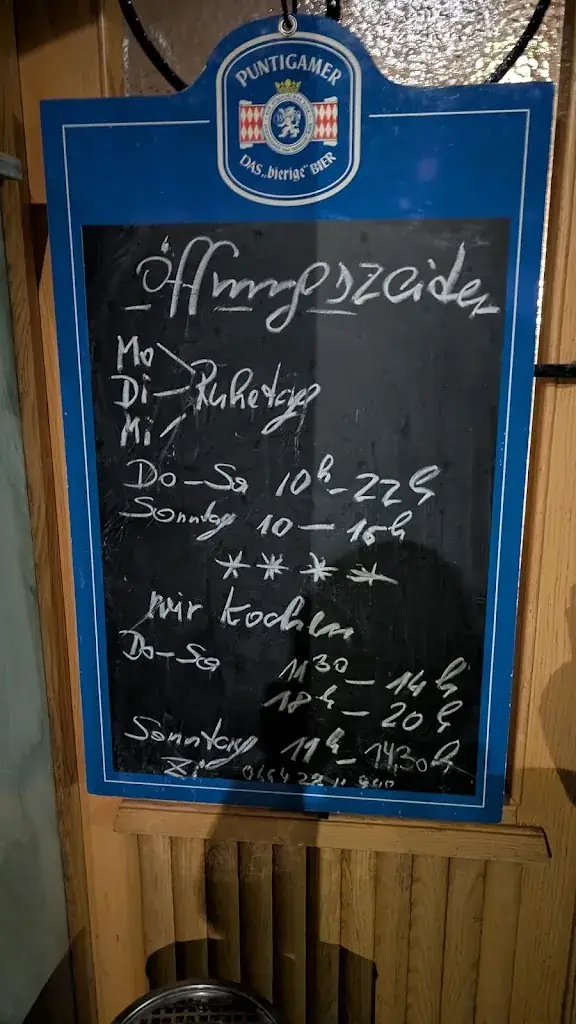 PUNTIGAMER
DAS „bierige" BIER
Öffnungszeiten
Mo
Di - Ruhetag
Mi
Do - Sa 10h - 22h
Sonntag 10 - 15h
* * * *
wir kochen
Do - Sa 11 30 - 14h
18h - 20h
Sonntag 11h - 14.30h